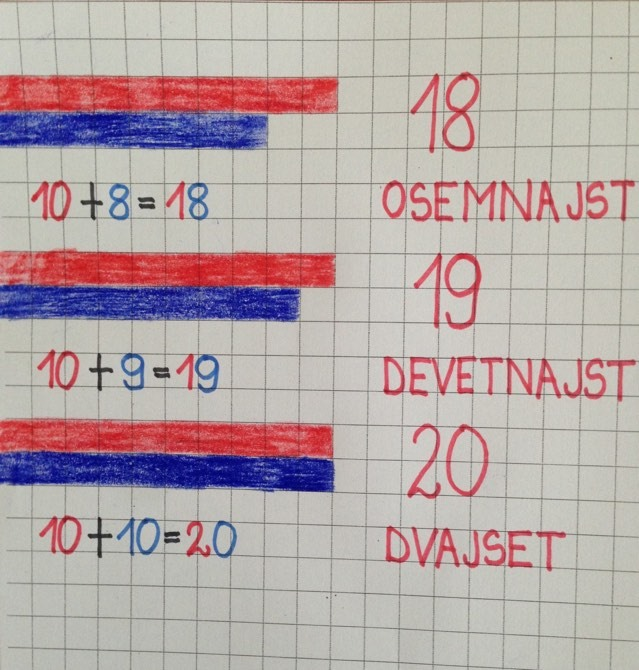 18
10 + 8 = 18
OSEMNAJST
19
10 + 9 = 19
DEVETNAJST
20
10 + 10 = 20
DVAJSET